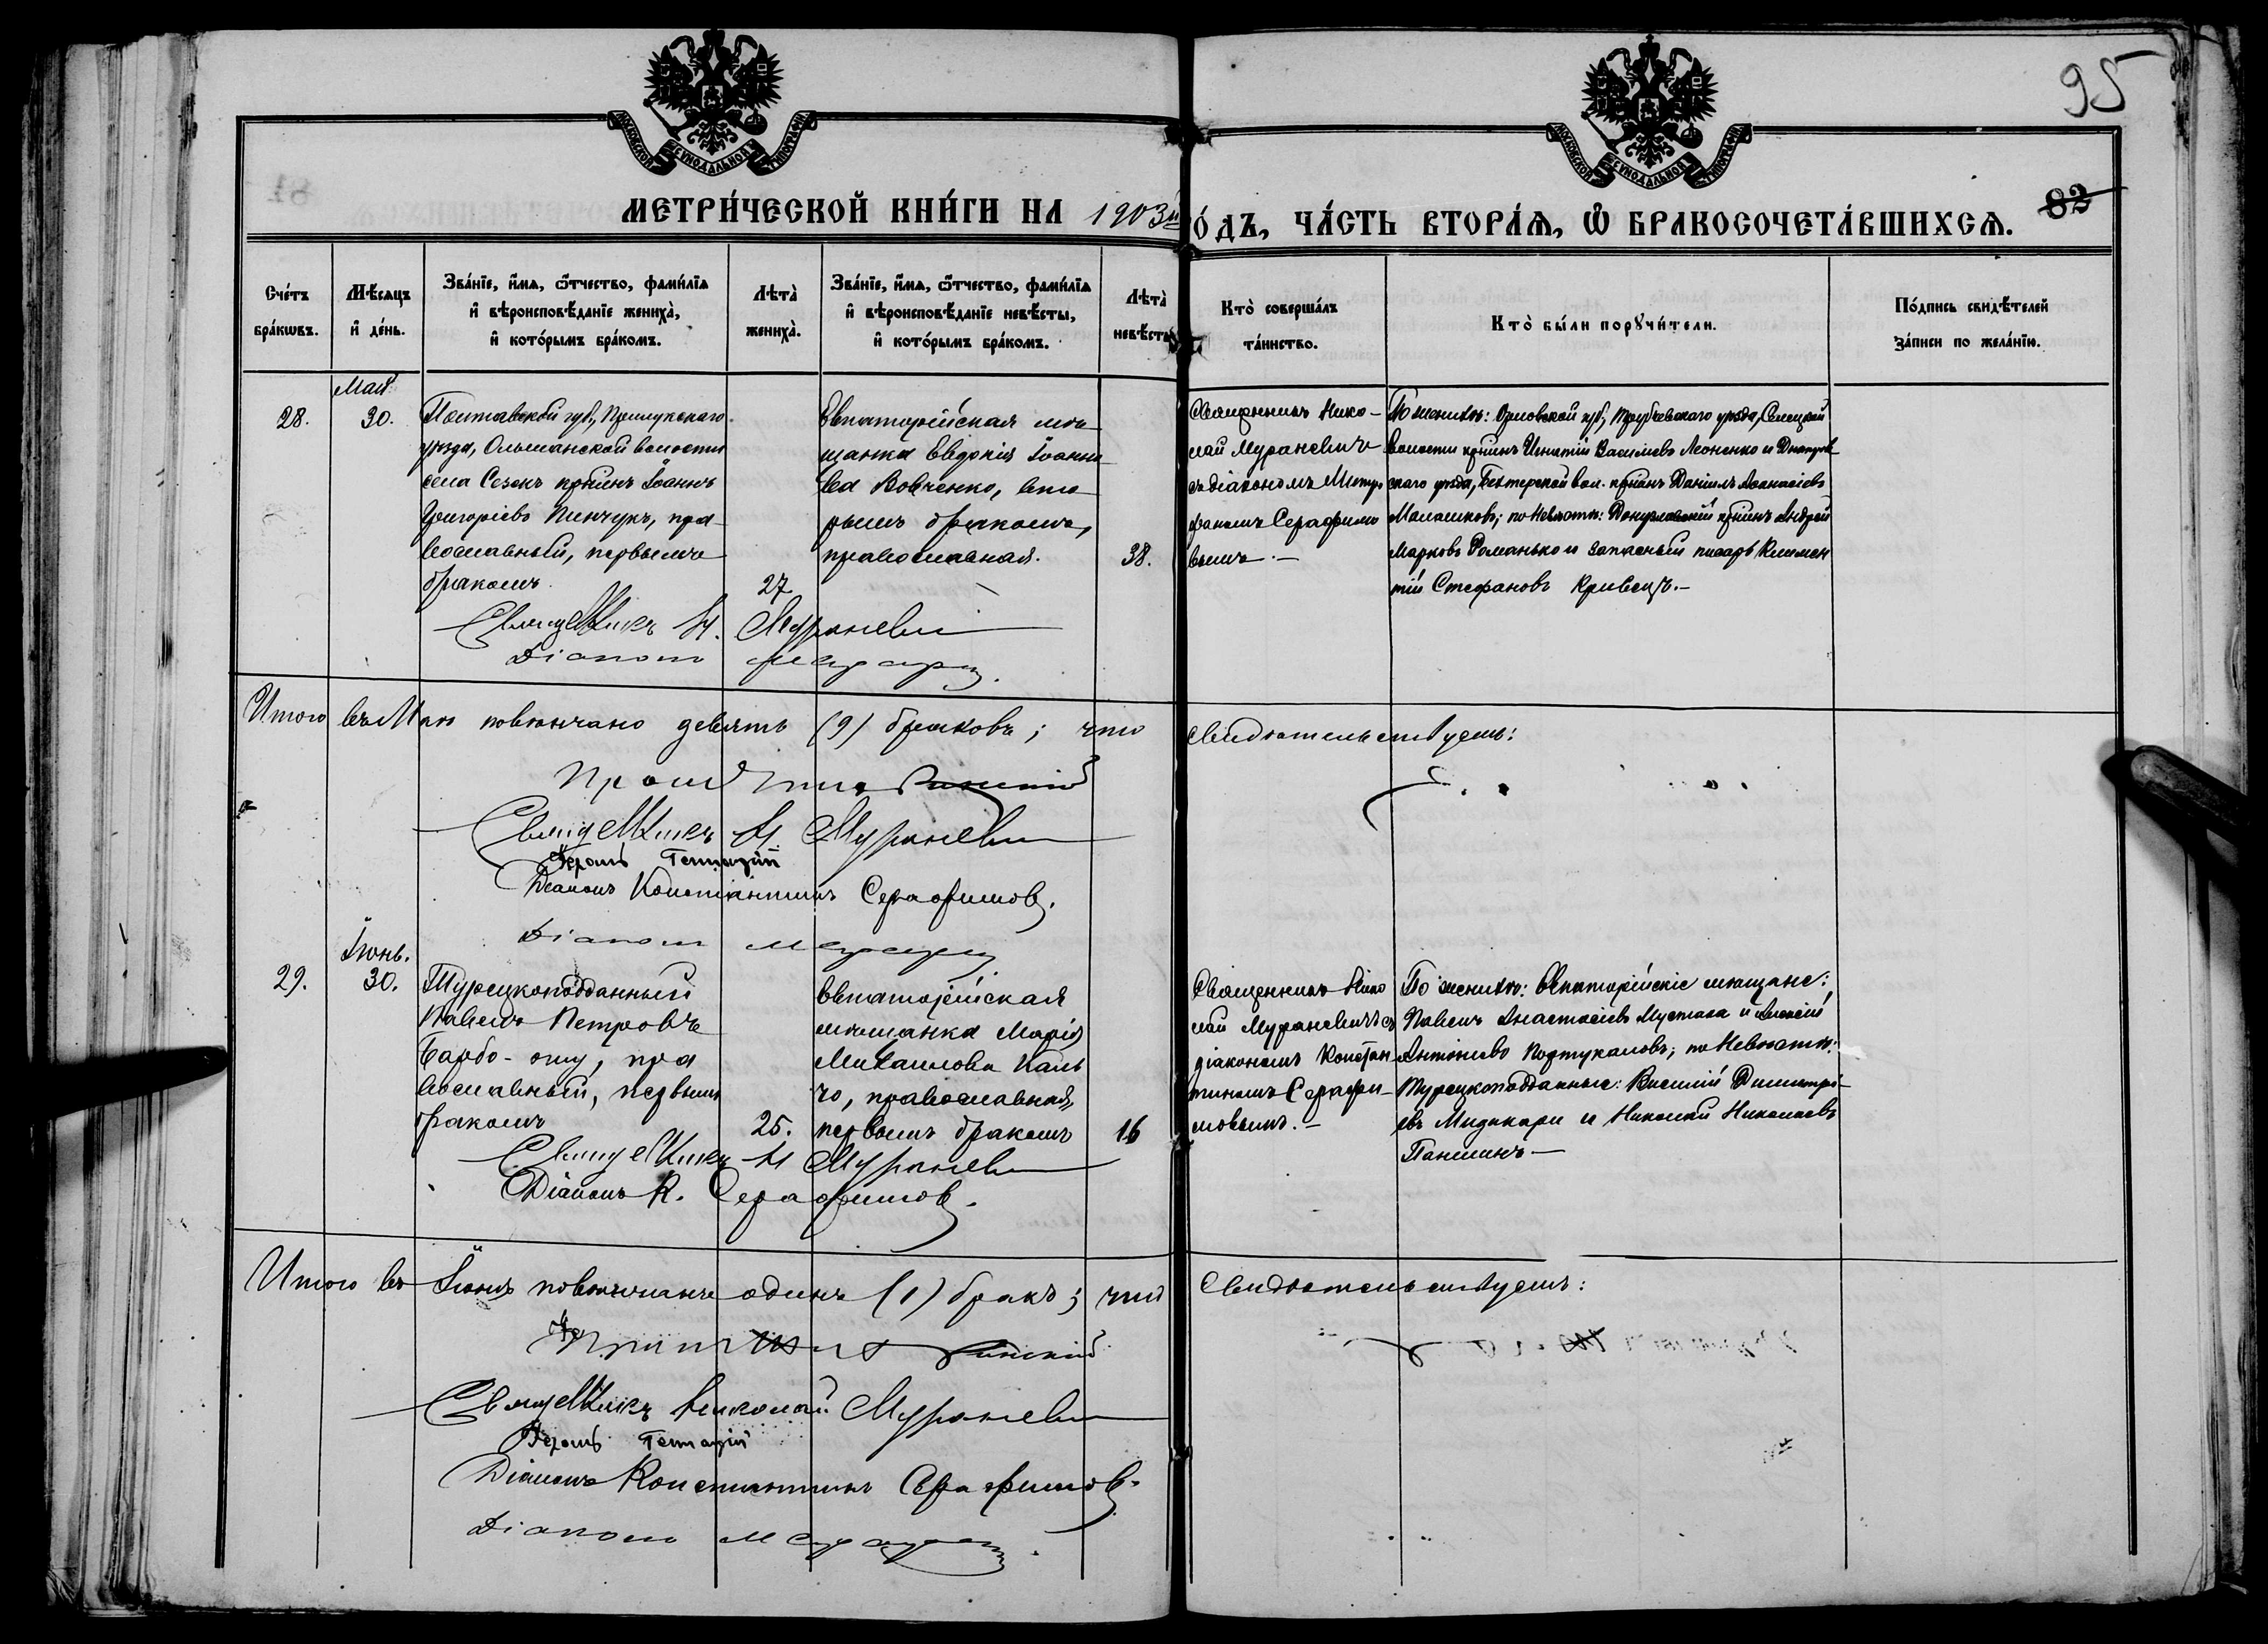 95
МОСКОВСКОЙ СѴНОДАЛЬНОЙ ТИПОГРАФІИ
МОСКОВСКОЙ СѴНОДАЛЬНОЙ ТИПОГРАФІИ
МЕТРИ́ЧЕСКОЙ КНИ́ГИ НА 1903й
О́ДЪ, ЧА́СТЬ ВТОРА́Ѧ, Ѡ БРАКОСОЧЕТА́ВШИХСѦ.
82
Сче́тъ бра́кѡвъ.
Мѣ́сѧцъ и҆ де́нь.
Зва́нїе, и҆́мѧ, ѻ҆́тчество, фами́лїѧ
и҆ вѣроисповѣ́данїе жениха̀,
и҆ кото́рымъ бра́комъ.
Лѣта̀ жениха̀.
Зва́нїе, и҆́мѧ, ѻ҆́тчество, фами́лїѧ
и҆ вѣроисповѣ́данїе невѣ́сты,
и҆ кото́рымъ бра́комъ.
Лѣта̀ невѣ́сты
Кто̀ соверша́лъ
та́инство.
Кто̀ бы́ли порꙋчи́тели.
По́дпись свидѣ́телей
за́писи по жела́нїю.
28.
Мая
30.
Полтавской губ., Прилукскаго
уѣзда, Ольшанской волости
села Сезекъ кр̃нинъ Іоаннъ
Григоріевъ Пинчукъ, пра-
вославный, первымъ
бракомъ
27
Евпаторійская мѣ
щанка Евдокія Іоанно
ва Вовченко, вто
рымъ бракомъ,
православная.
38.
Священникъ Нико-
лай Мураневичъ
съ діакономъ Митро
фаномъ Серафимо
вымъ.—
По женихѣ: Орловской губ., Трубчевскаго уѣзда, Селецкой
волости кр̃нинъ Игнатій Василіевъ Леоненко и Днѣпров
скаго уѣзда, Бехтерской вол. кр̃нинъ Даніилъ Аѳанасіевъ
Малашковъ; по невѣстѣ: Донузлавскій кр̃нинъ Андрей
Марковъ Романько и запасный писарь Климен
тій Стефановъ Кривецъ.—
Священникъ Н. Мураневич
Діаконъ
Итого въ Маѣ повѣнчано девять (9) браковъ; что
свидѣтельствуемъ:
Священникъ Н. Мураневич
Іером. Геннадій
Діаконъ Константинъ Серафимов.
Діаконъ
29.
Іюнь.
30.
Турецкоподданный
Павелъ Петровъ
Барбо-оглу, пра
вославный, первымъ
бракомъ
25.
Евпаторійская
мѣщанка Марія
Михаилова Каль
чо, православная,
первымъ бракомъ
16
Священникъ Нико
лай Мураневичъ съ
діакономъ Констан
тиномъ Серафи-
мовымъ.—
По женихѣ: Евпаторійскіе мѣщане:
Павелъ Анастасіевъ Мустака и Алексій
Антоніевъ Подтукаловъ; по невѣстѣ:
Турецкоподданные: Василій Димитрі-
евъ Мидикари и Николай Николаевъ
Паншинъ—
Священникъ Н Мураневич
Діаконъ К. Серафимов.
Итого въ Іюнѣ повѣнчанъ одинъ (1) бракъ; что
свидѣтельствуемъ:
Священникъ Николай Мураневич
Іером. Геннадій
Діаконъ Константинъ Серафимов.
Діаконъ